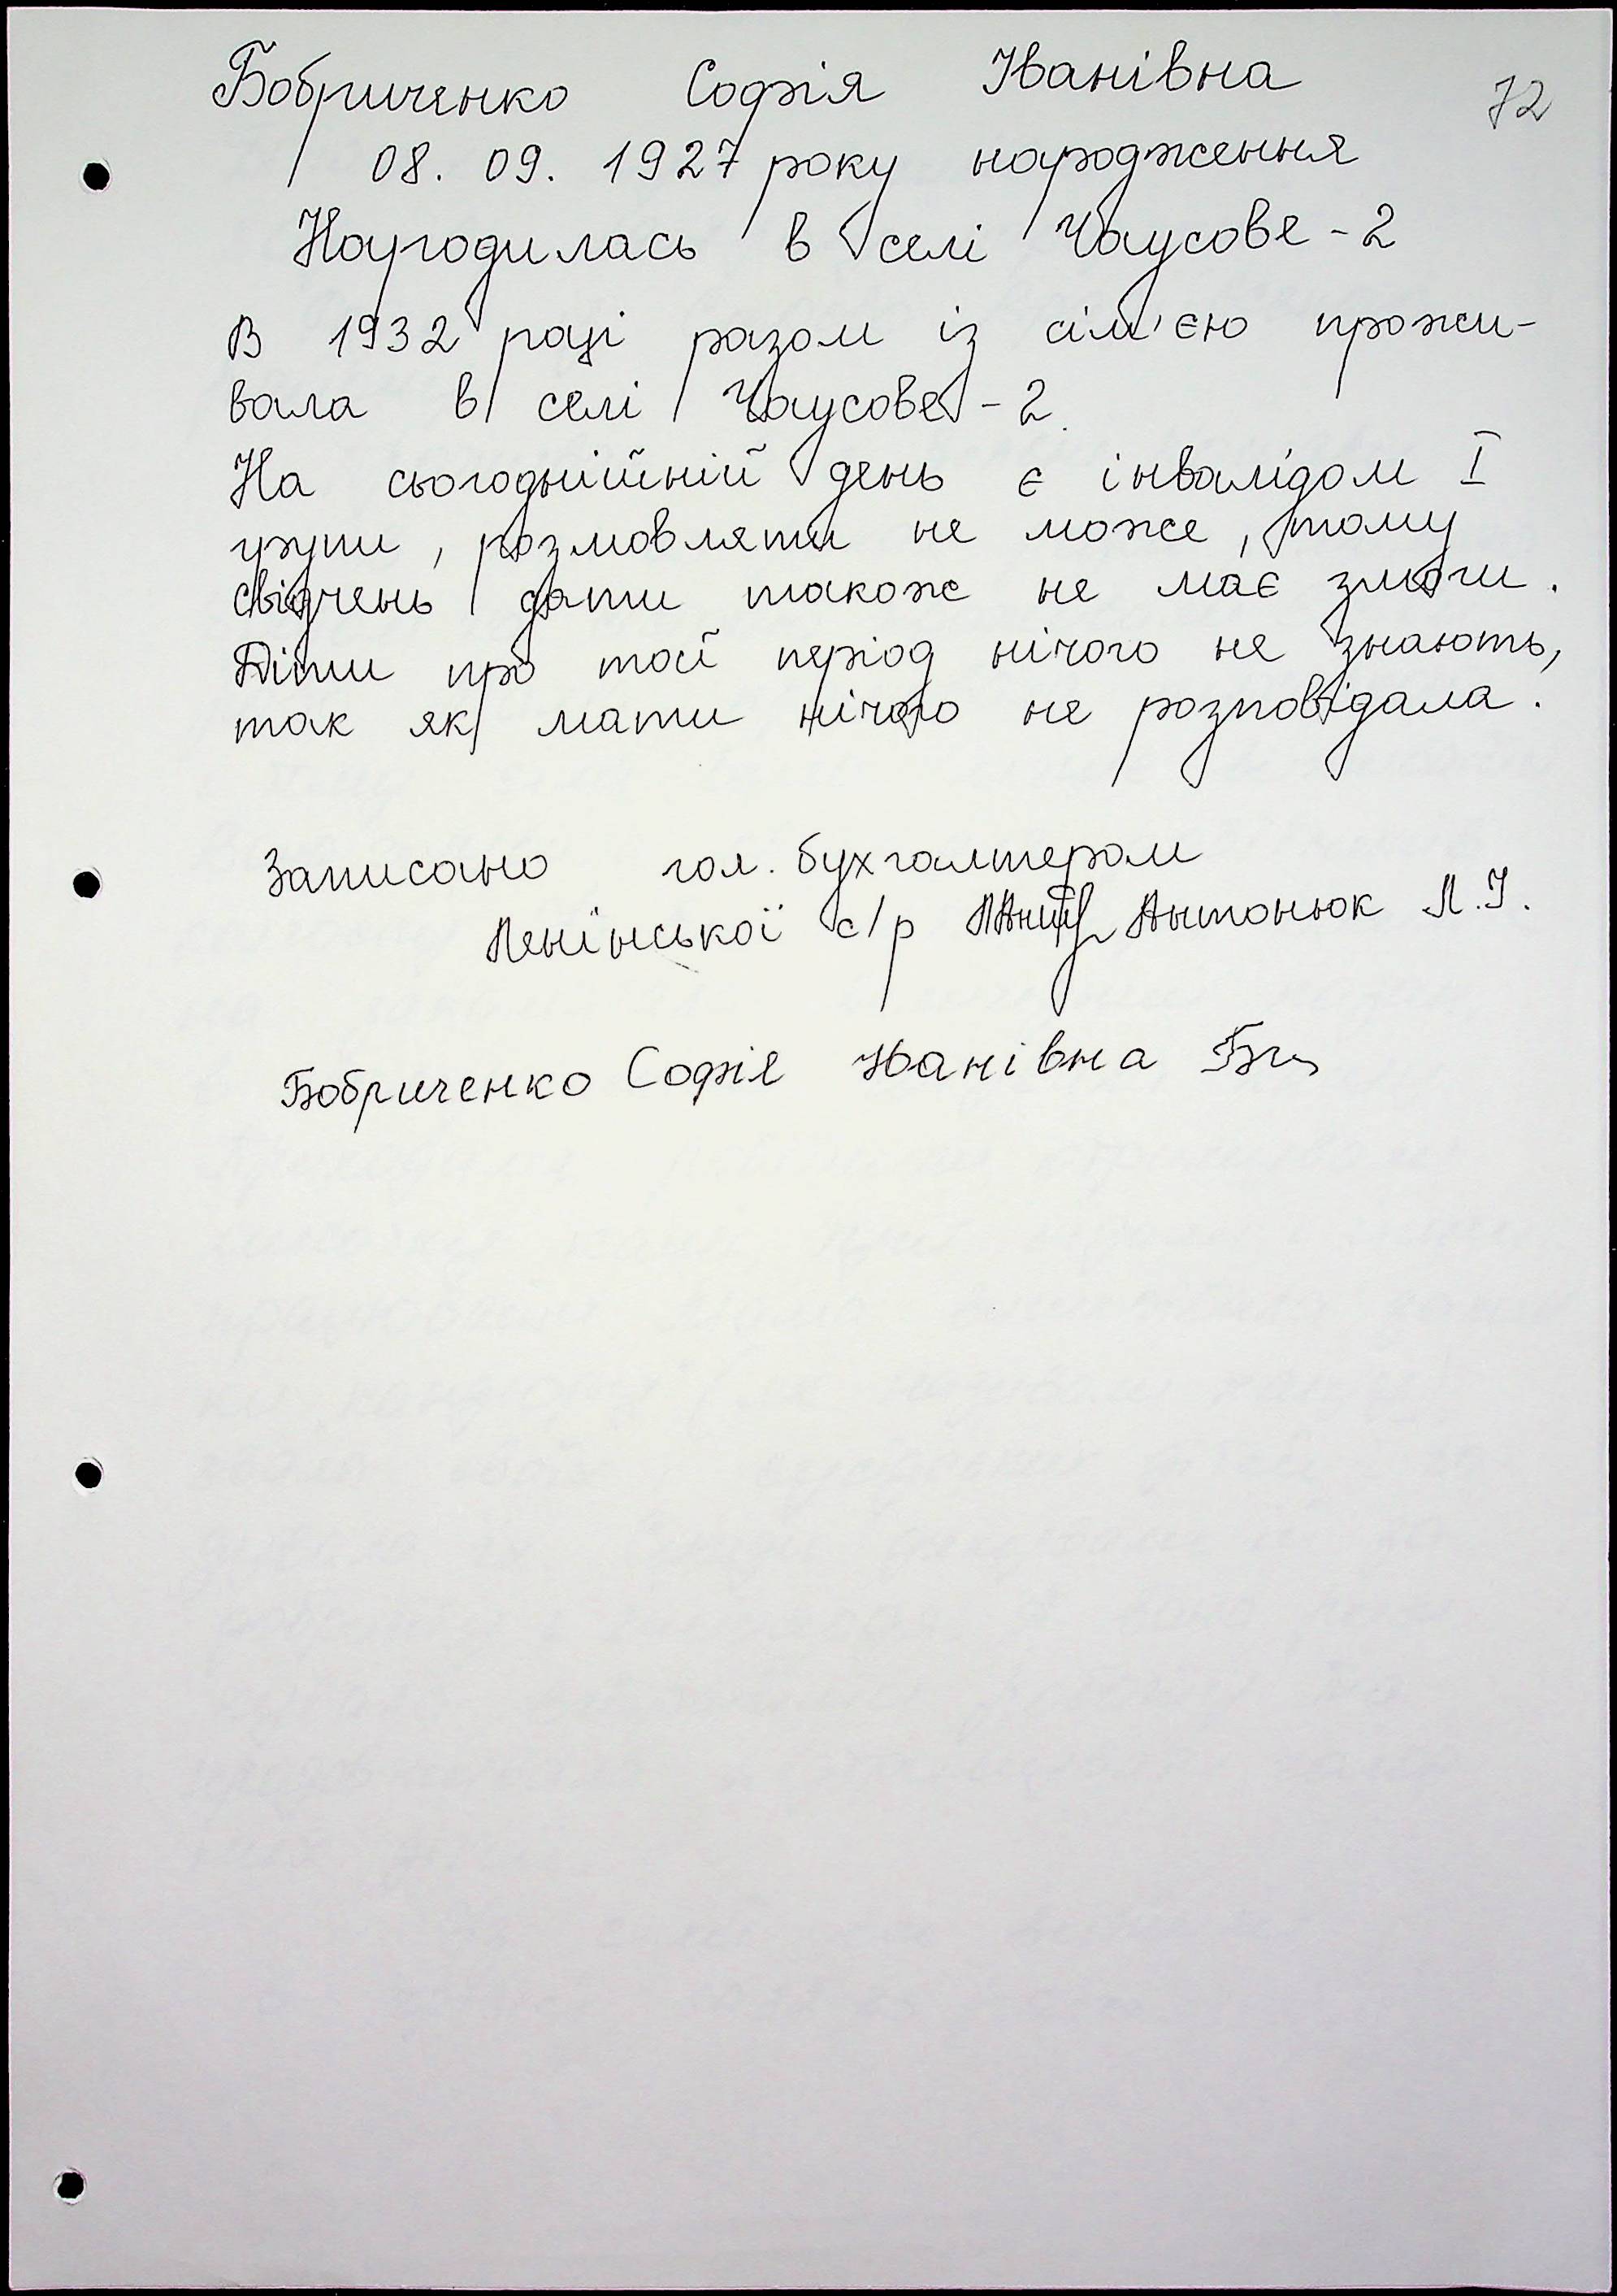 Бобриченко Софія Іванівна
72
08. 09. 1927 року народження
Народилась в селі Чаусове - 2
В 1932 році разом із сім'єю прожи-
вала в селі Чаусове - 2.
На сьогоднійшній день є інвалідом І
групи, розмовляти не може, тому
свідчень дати також не має змоги.
Діти про той період нічого не знають,
так як мати нічого не розповідала.
Записано гол. бухгалтером
Ленінської с/р Антонюк Л.І.
Бобриченко Софія Іванівна